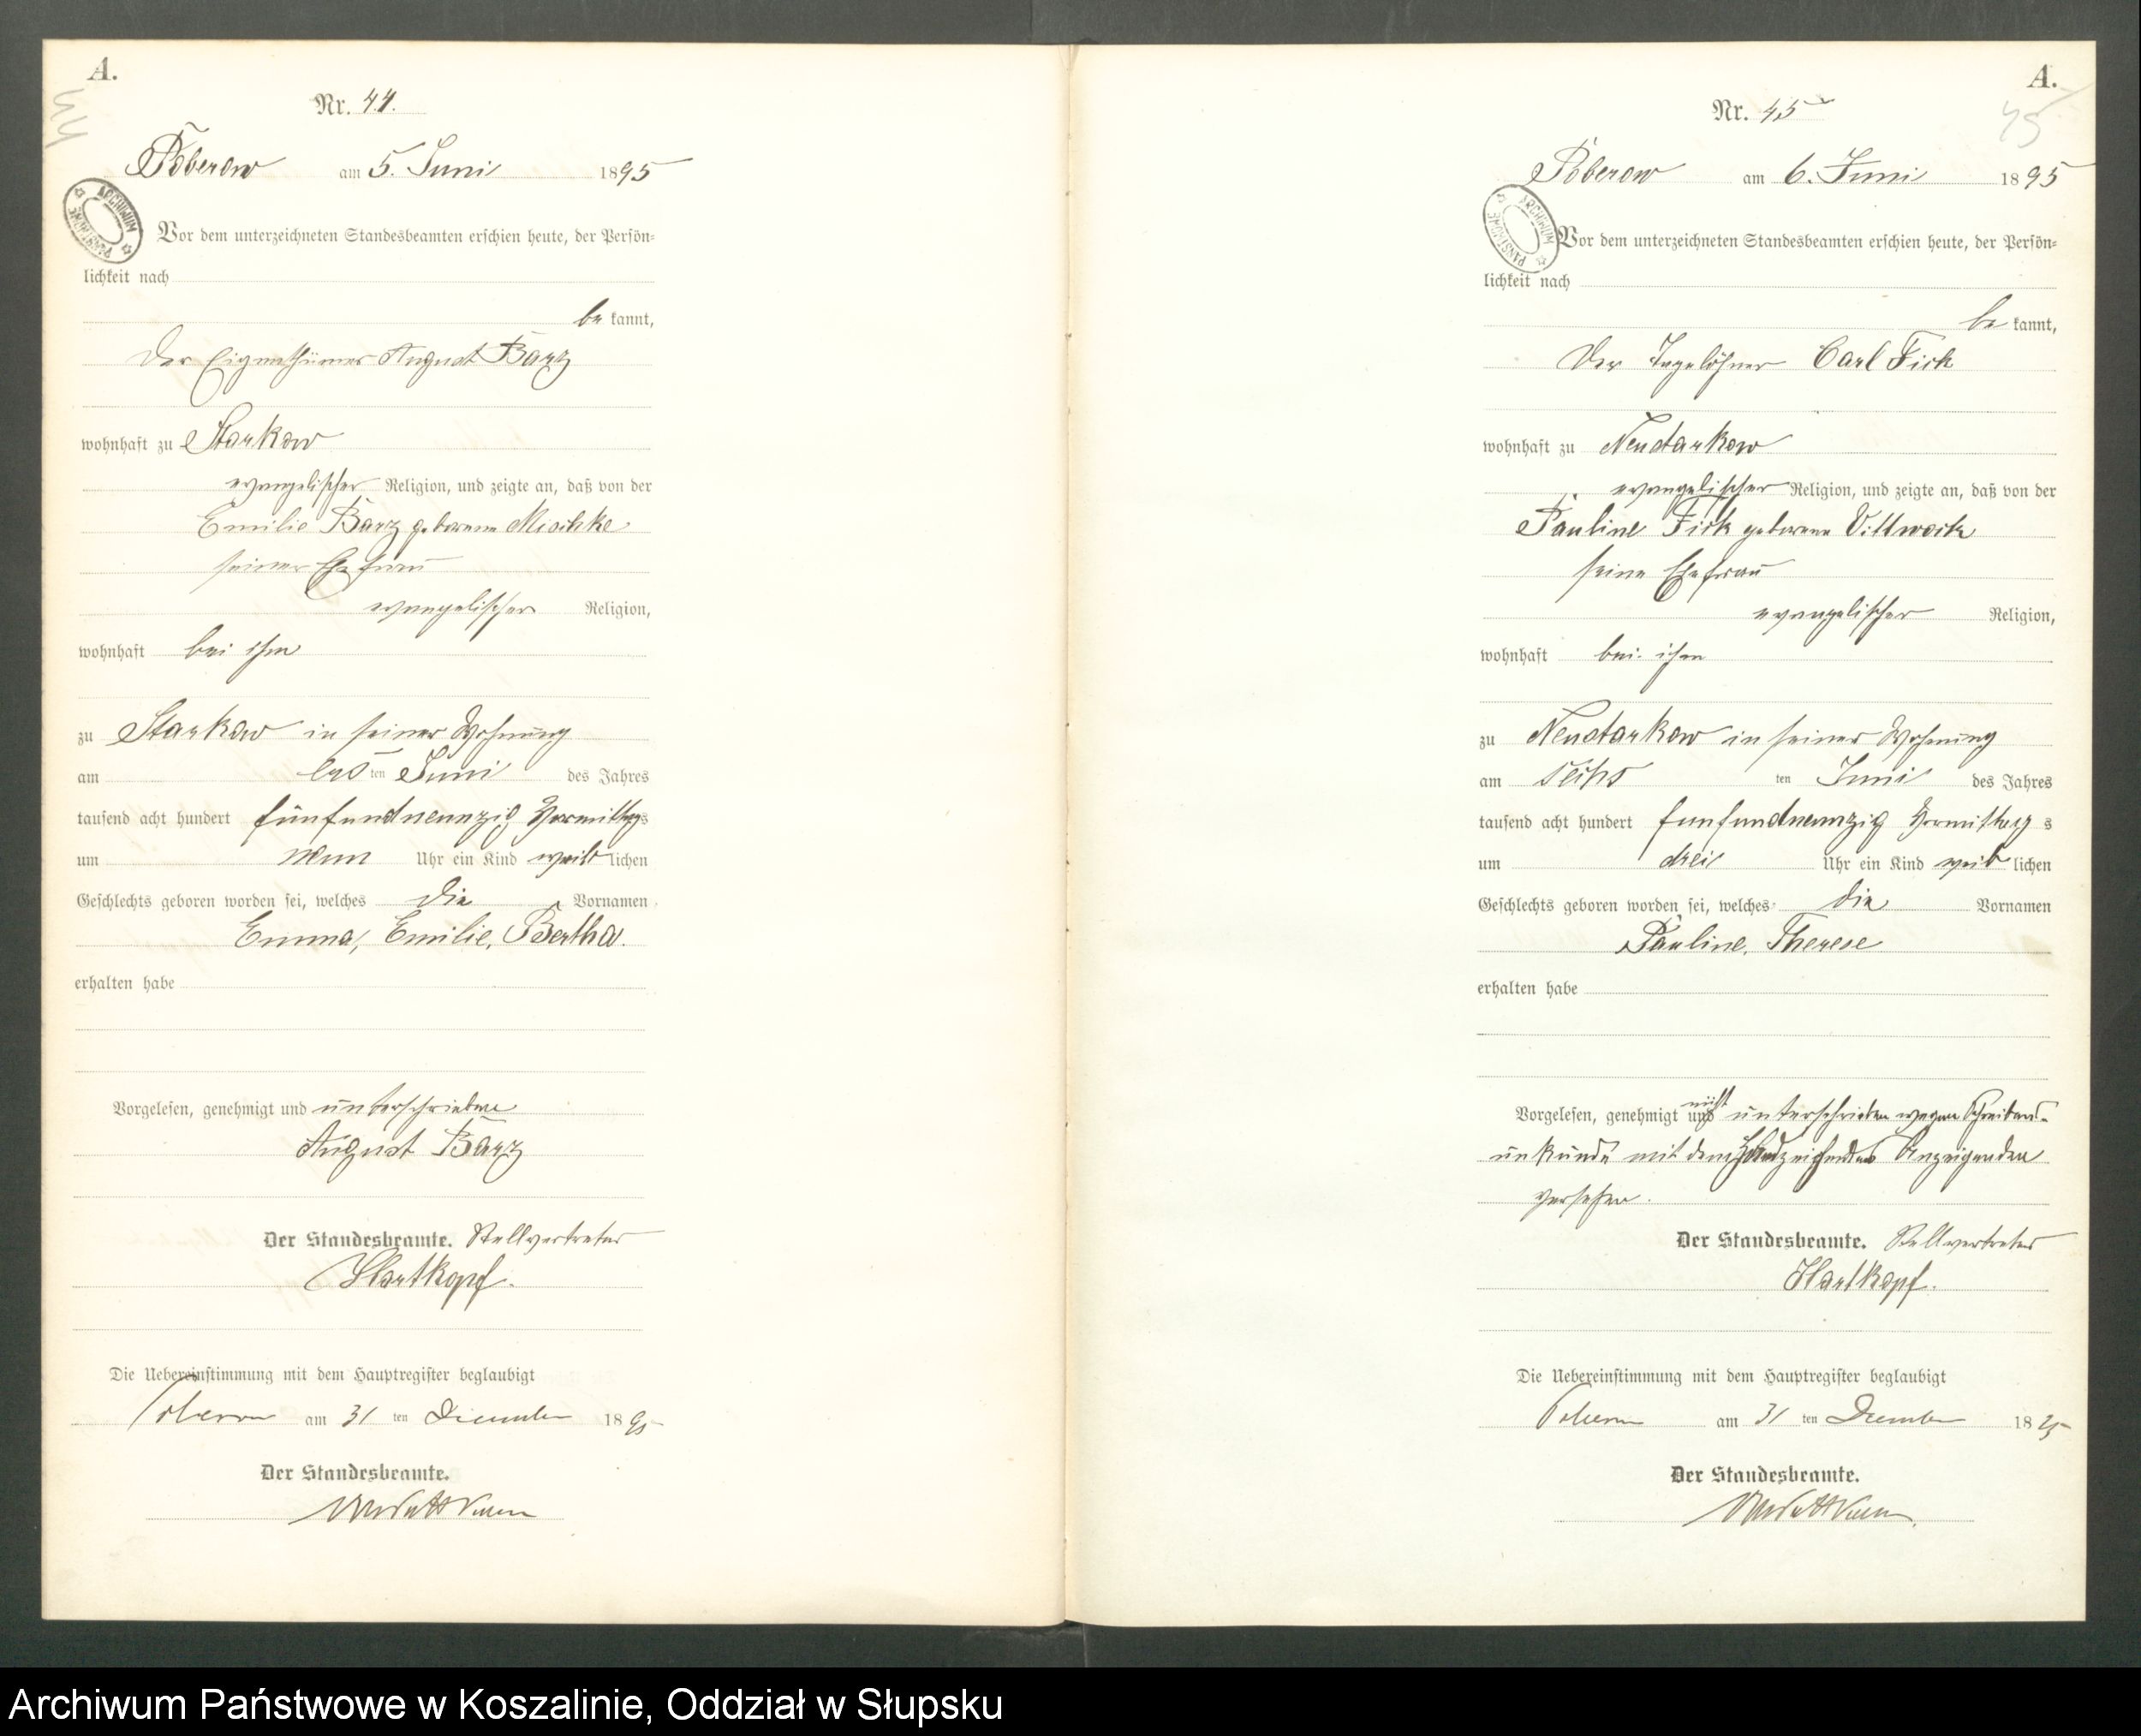 A.
44
Nr. 44.
Poberow am 5. Juni 1895
ARCHIWUM PAŃSTWOWE
Vor dem unterzeichneten Standesbeamten erschien heute, der Persön=
lichkeit nach
be kannt,
der Eigenthümer August Barz
wohnhaft zu Starkow
evangelischer Religion, und zeigte an, daß von der
Emilie Barz geborene Mischke
seiner Ehefrau
evangelischer Religion,
wohnhaft bei ihm
zu Starkow in seiner Wohnung
am ersten Juni des Jahres
tausend acht hundert fünfundneunzig Vormittags
um neun Uhr ein Kind weiblichen
Geschlechts geboren worden sei, welches die Vornamen
Emma, Emilie, Bertha.
erhalten habe
Vorgelesen, genehmigt und unterschrieben
August Barz
Der Standesbeamte. Stellvertreter
Hartkopf.
Die Uebereinstimmung mit dem Hauptregister beglaubigt
Poberow am 31 ten Dezember 1895
Der Standesbeamte.
A.
45
Nr. 45
Poberow am 6. Juni 1895
ARCHIWUM PAŃSTWOWE
Vor dem unterzeichneten Standesbeamten erschien heute, der Persön=
lichkeit nach
be kannt,
der Tagelöhner Carl Fick
wohnhaft zu Neustarkow
evangelischer Religion, und zeigte an, daß von der
Pauline Fick geborene Vittwock
seine Ehefrau
evangelischer Religion,
wohnhaft bei ihm
zu Neustarkow in seiner Wohnung
am sechsten Juni des Jahres
tausend acht hundert funfundneunzig Vormittags
um drei Uhr ein Kind weiblichen
Geschlechts geboren worden sei, welches die Vornamen
Pauline, Therese
erhalten habe
Vorgelesen, genehmigt und nicht unterschrieben wegen Schreibens-
unkunde mit dem Handzeichen des Anzeigenden
versehen.
Der Standesbeamte. Stellvertreter
Hartkopf.
Die Uebereinstimmung mit dem Hauptregister beglaubigt
Poberow am 31 ten Dezember 1895
Der Standesbeamte.
Archiwum Państwowe w Koszalinie, Oddział w Słupsku